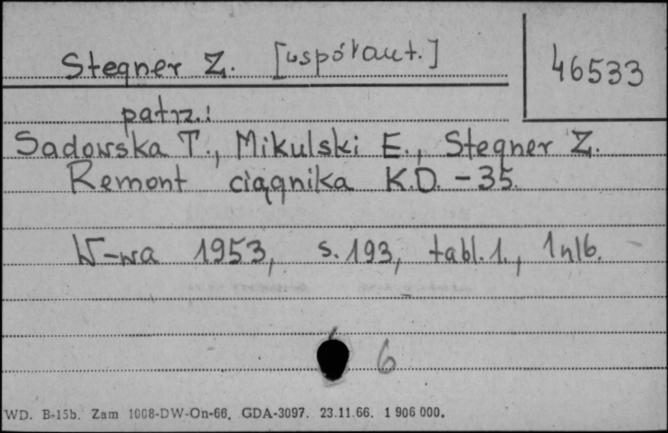 Stegner Z. [współaut.]
46533
patrz.:
Sadowska T., Mikulski E., Stegner Z.
Remont ciągnika K.D. - 35.
W-wa 1953, s. 193, tabl. 1., 1 nlb.
6
WD. B-15b. Zam 1008-DW-On-66. GDA-3097. 23.11.66. 1 906 000.